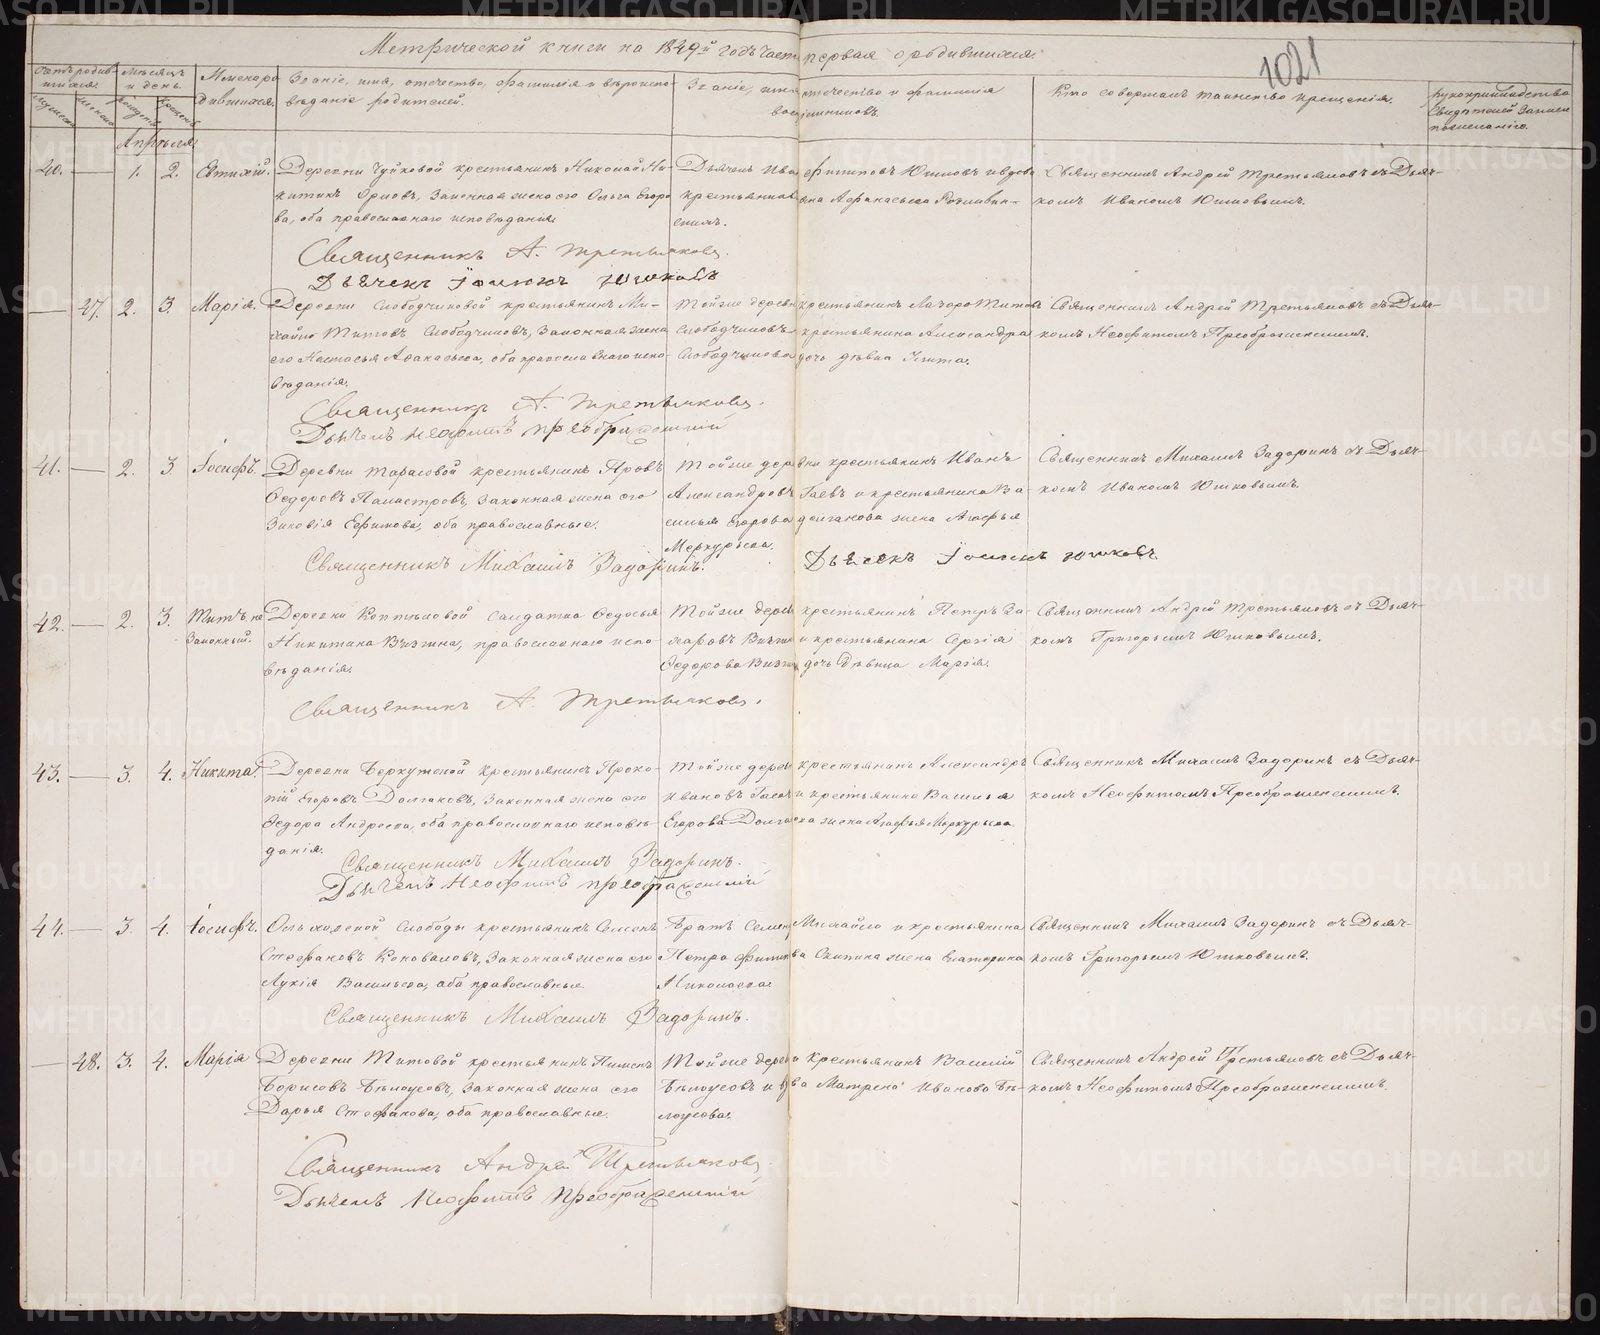 Метрической книги на 1849й годъ часть первая о родившихся.
1021
Мѣсяцъ и день.
Имена родившихся.
Званіе, имя, отчество, фамилія и вѣроисповѣданіе родителей.
Званіе, имя, отчество и фамилія воспріемниковъ.
Кто совершалъ таинство крещенія.
Рукоприкладство свидѣтелей записи по желанію.
Апрѣля
40. — 1. 2. Евтихій.
Деревни Чуйковой крестьянинъ Николай Ни-
китинъ Орловъ, Законная жена его Ольга Егоро-
ва, оба православнаго исповѣданія.
Дьячекъ Иванъ Филиповъ Юшковъ и вдова
крестьянская Афанасьева
Священникъ Андрей Третьяковъ съ Дьяч-
комъ Иваномъ Юшковымъ.
Священникъ А. Третьяковъ.
Дьячекъ Іоаннъ Юшковъ
— 47. 2. 3. Марія.
Деревни Слободчиковой крестьянинъ Ми-
хайло Титовъ Слободчиковъ, Законная жена
его Настасья Афанасьева, оба православнаго испо-
вѣданія.
Тойже деревни крестьянинъ Лазарь Титовъ
Слободчиковъ крестьянина Александра
Слободчикова дочь дѣвка
Священникъ Андрей Третьяковъ съ Дьяч-
комъ Неофитомъ Преображенскимъ.
Священникъ А. Третьяковъ.
Дьячекъ Неофитъ Преображенскій
41. — 2. 3 Іосифъ.
Деревни Тарасовой крестьянинъ Провъ
Федоровъ Законная жена его
Зиновія Ефимова, оба православные.
Тойже деревни крестьянинъ Иванъ
Александровъ Гаевъ и крестьянина Ва-
силья Егорова Долгакова жена Агафья
Меркурьева.
Священникъ Михаилъ Задоринъ съ Дьяч-
комъ Иваномъ Юшковымъ.
Священникъ Михаилъ Задоринъ.
Дьячекъ Іоаннъ Юшковъ
42. — 2. 3. Титъ, не
Законный.
Деревни солдатка Федосья
Никитина Вяткина, православнаго испо-
вѣданія.
Тойже деревни крестьянинъ Петръ За-
харовъ и крестьянина Сергія
Федорова дочь дѣвица Марія.
Священникъ Андрей Третьяковъ съ Дьяч-
комъ Григорьемъ Юшковымъ.
Священникъ А. Третьяковъ.
43. — 3. 4. Никита.
Деревни Беркутской крестьянинъ Проко-
пій Егоровъ Долгаковъ, Законная жена его
Федора Андреева, оба православнаго исповѣ-
данія.
Тойже деревни крестьянинъ Александръ
Ивановъ Гаевъ и крестьянина Василья
Егорова Долгакова жена Агафья Меркурьева.
Священникъ Михаилъ Задоринъ съ Дьяч-
комъ Неофитомъ Преображенскимъ.
Священникъ Михаилъ Задоринъ.
Дьячекъ Неофитъ Преображенскій
44. — 3. 4. Іосифъ.
Слободы крестьянинъ Семенъ
Стефановъ Коноваловъ, Законная жена его
Лукія Васильева, оба православные
Братъ Семена Михайло и крестьянина
Петра Филипова Скипина жена Екатерина
Николаева
Священникъ Михаилъ Задоринъ съ Дьяч-
комъ Григорьемъ Юшковымъ.
Священникъ Михаилъ Задоринъ.
— 48. 3. 4. Марія
Деревни Титовой крестьянинъ Пименъ
Борисовъ Бѣлоусовъ, Законная жена его
Дарья Стефанова, оба православные.
Тойже деревни крестьянинъ Василій
Бѣлоусовъ и вдова Матрена Иванова Бѣ-
лоусова.
Священникъ Андрей Третьяковъ съ Дьяч-
комъ Неофитомъ Преображенскимъ.
Священникъ Андрей Третьяковъ.
Дьячекъ Неофитъ Преображенскій
METRIKI.GASO-URAL.RU